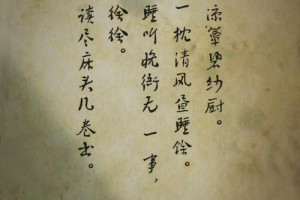 凉簟碧纱厨。
一枕清风昼睡馀。
睡听晚衙无一事，
徐徐。
读尽床头几卷书。